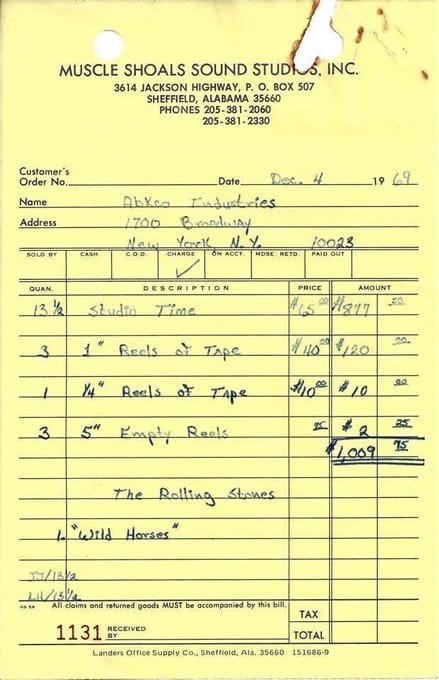 MUSCLE SHOALS SOUND STUDIOS, INC.
3614 JACKSON HIGHWAY, P. O. BOX 507
SHEFFIELD, ALABAMA 35660
PHONES 205-381-2060
205-381-2330
Customer's
Order No. Date Dec. 4 1969
Name Abkco Industries
Address 1700 Broadway
New York, N.Y. 10023
SOLD BY CASH C.O.D. CHARGE ON ACCT. MDSE. RETD. PAID OUT
✓
QUAN. DESCRIPTION PRICE AMOUNT
13 1/2 Studio Time $65 00 $877 50
3 1" Reels of Tape $40 00 $120 00
1 1/4" Reels of Tape $10 00 $10 00
3 5" Empty Reels 75 $2 25
$1,009 75
The Rolling Stones
1. "Wild Horses"
JJ/13 1/2
LH/13 1/2
All claims and returned goods MUST be accompanied by this bill.
TAX
1131 RECEIVED BY
TOTAL
Landers Office Supply Co., Sheffield, Ala. 35660 151686-9